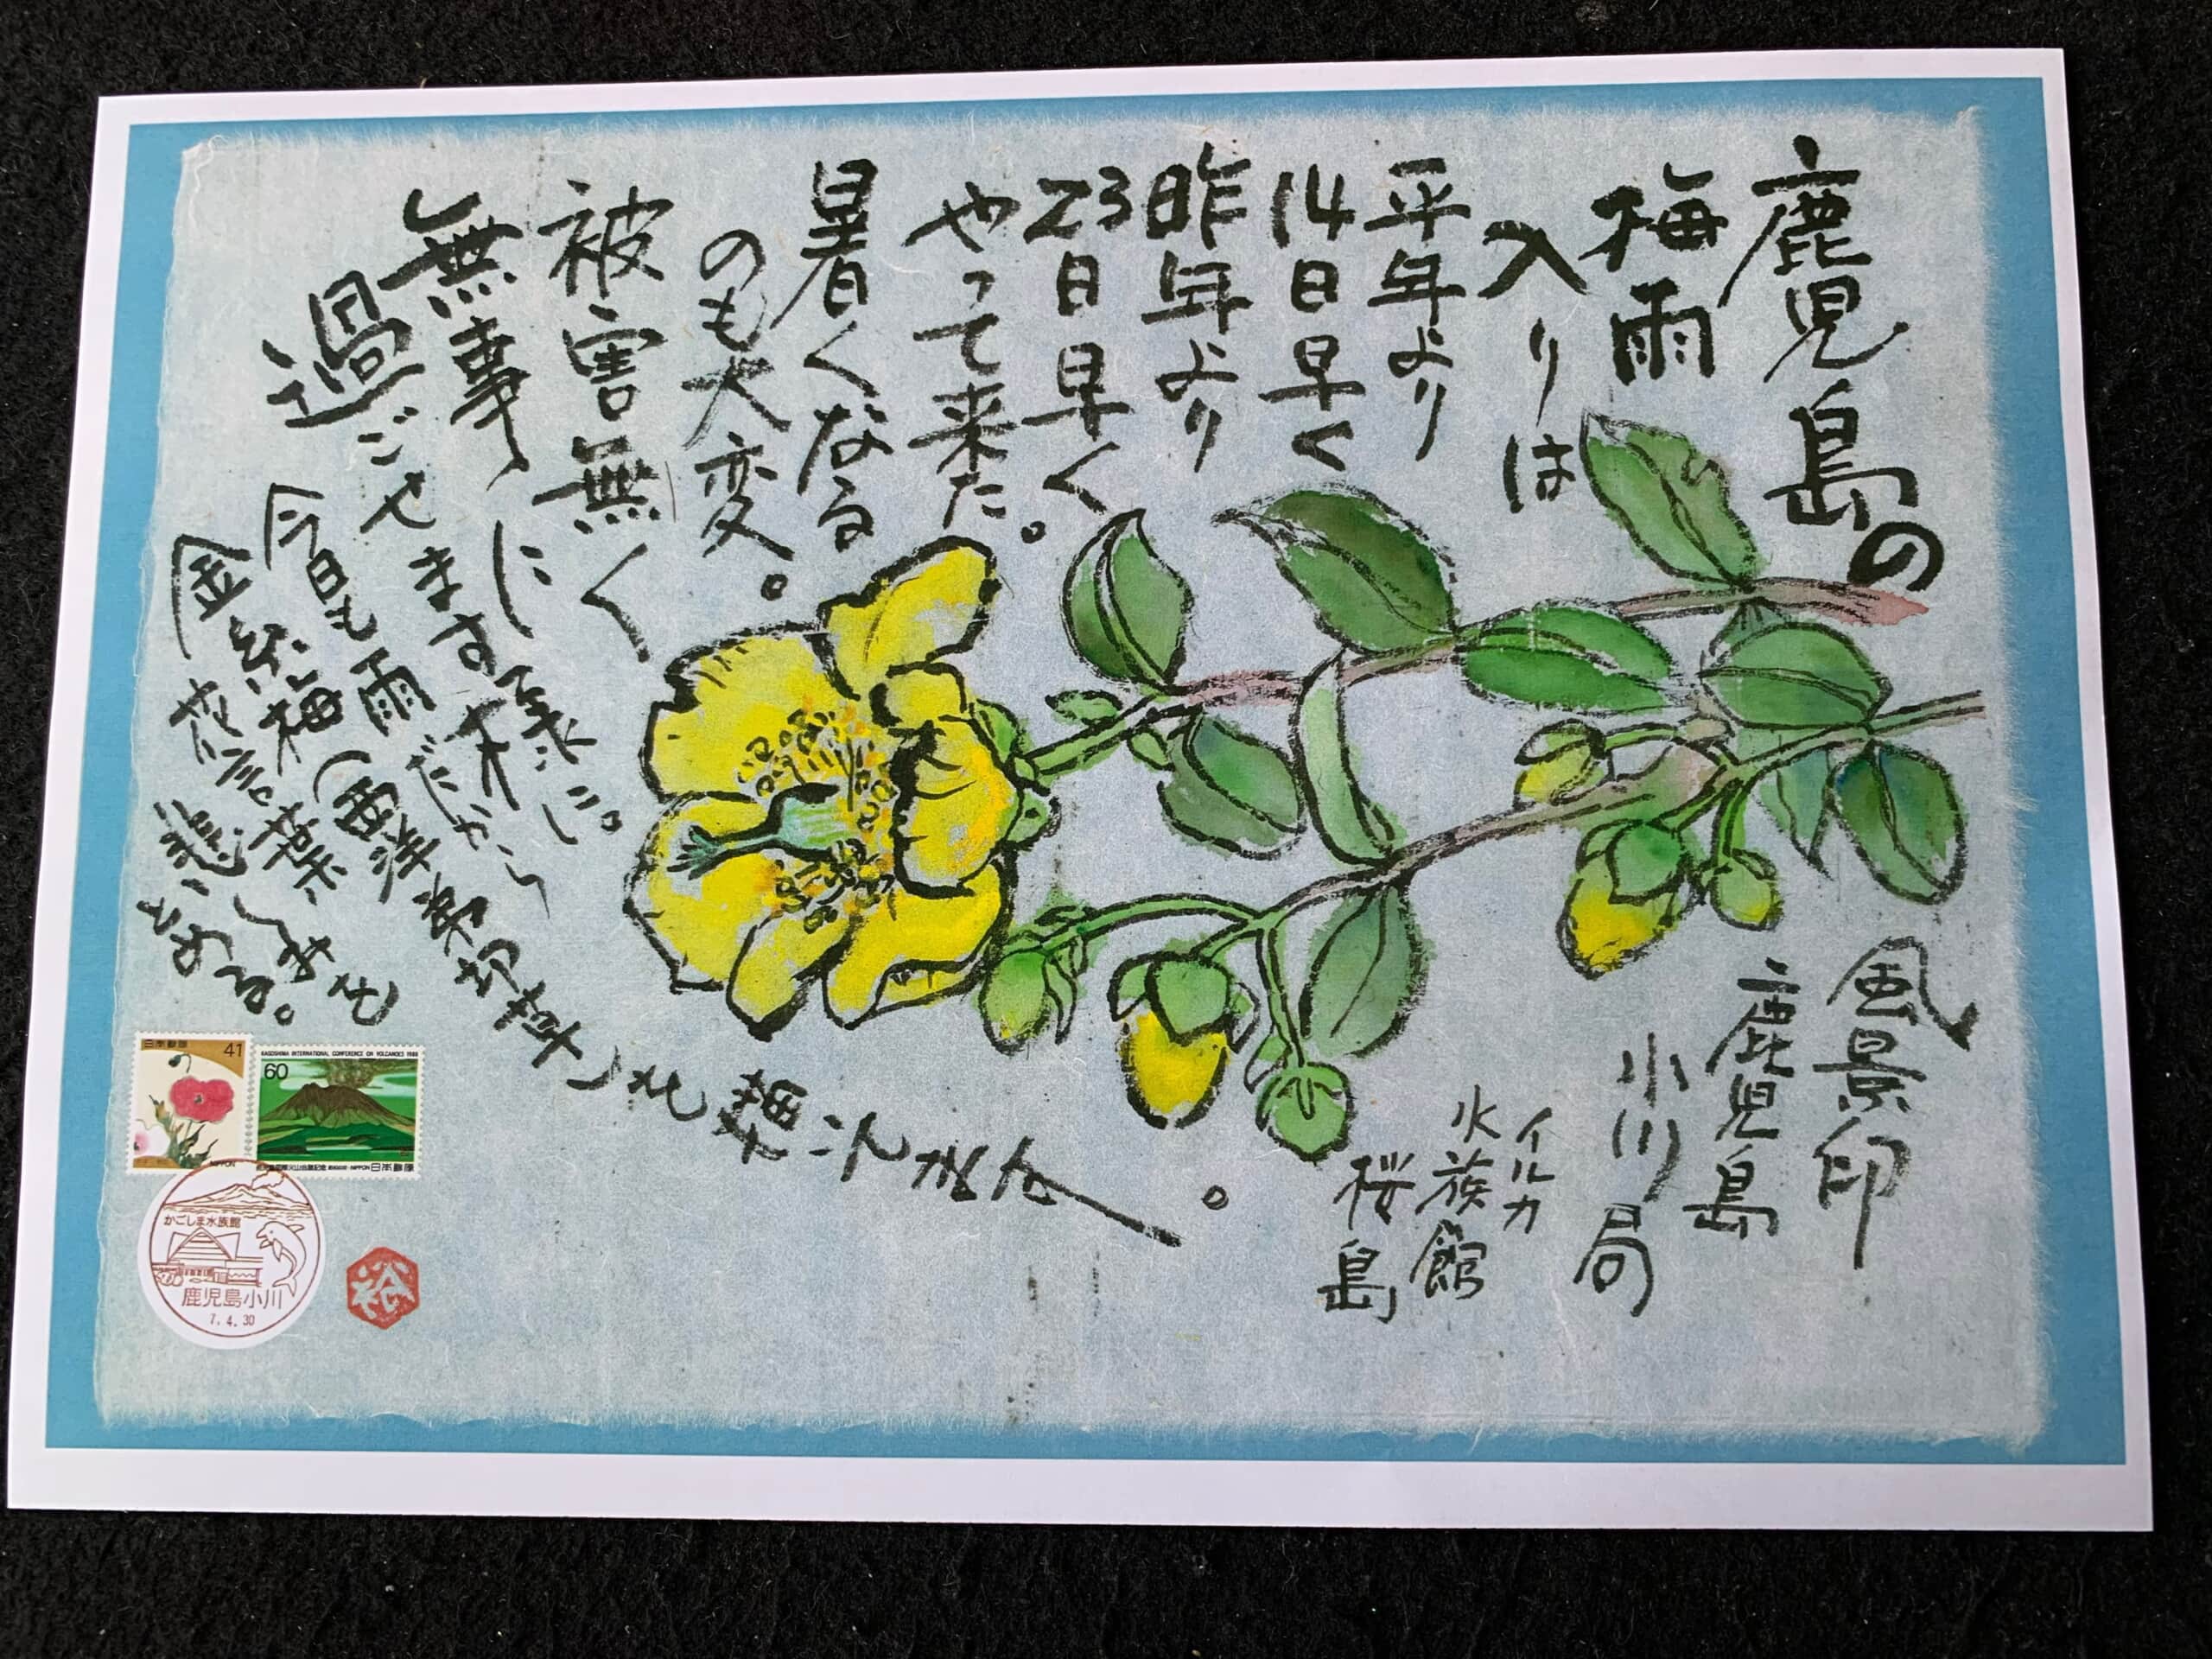 鹿児島の
梅雨
入りは
平年より
14日早く
昨年より
23日早く
やって来た。
暑くなる
のも大変。
被害無く
無事に
過ごせます様に。
今日も雨だから
金糸梅(西洋弟切草)も
花言葉
悲しみを
とめる。
風景印
鹿児島
小川局
イルカ
水族館
桜島
日本郵便
41
NIPPON
KAGOSHIMA INTERNATIONAL CONFERENCE ON VOLCANOES 1988
60
鹿児島国際火山会議記念 NIPPON 日本郵便
かごしま水族館
鹿児島小川
7.4.30